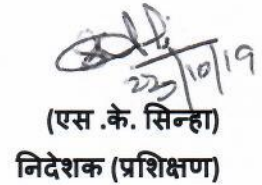 22/10/19
(एस .के. सिन्हा)
निदेशक (प्रशिक्षण)